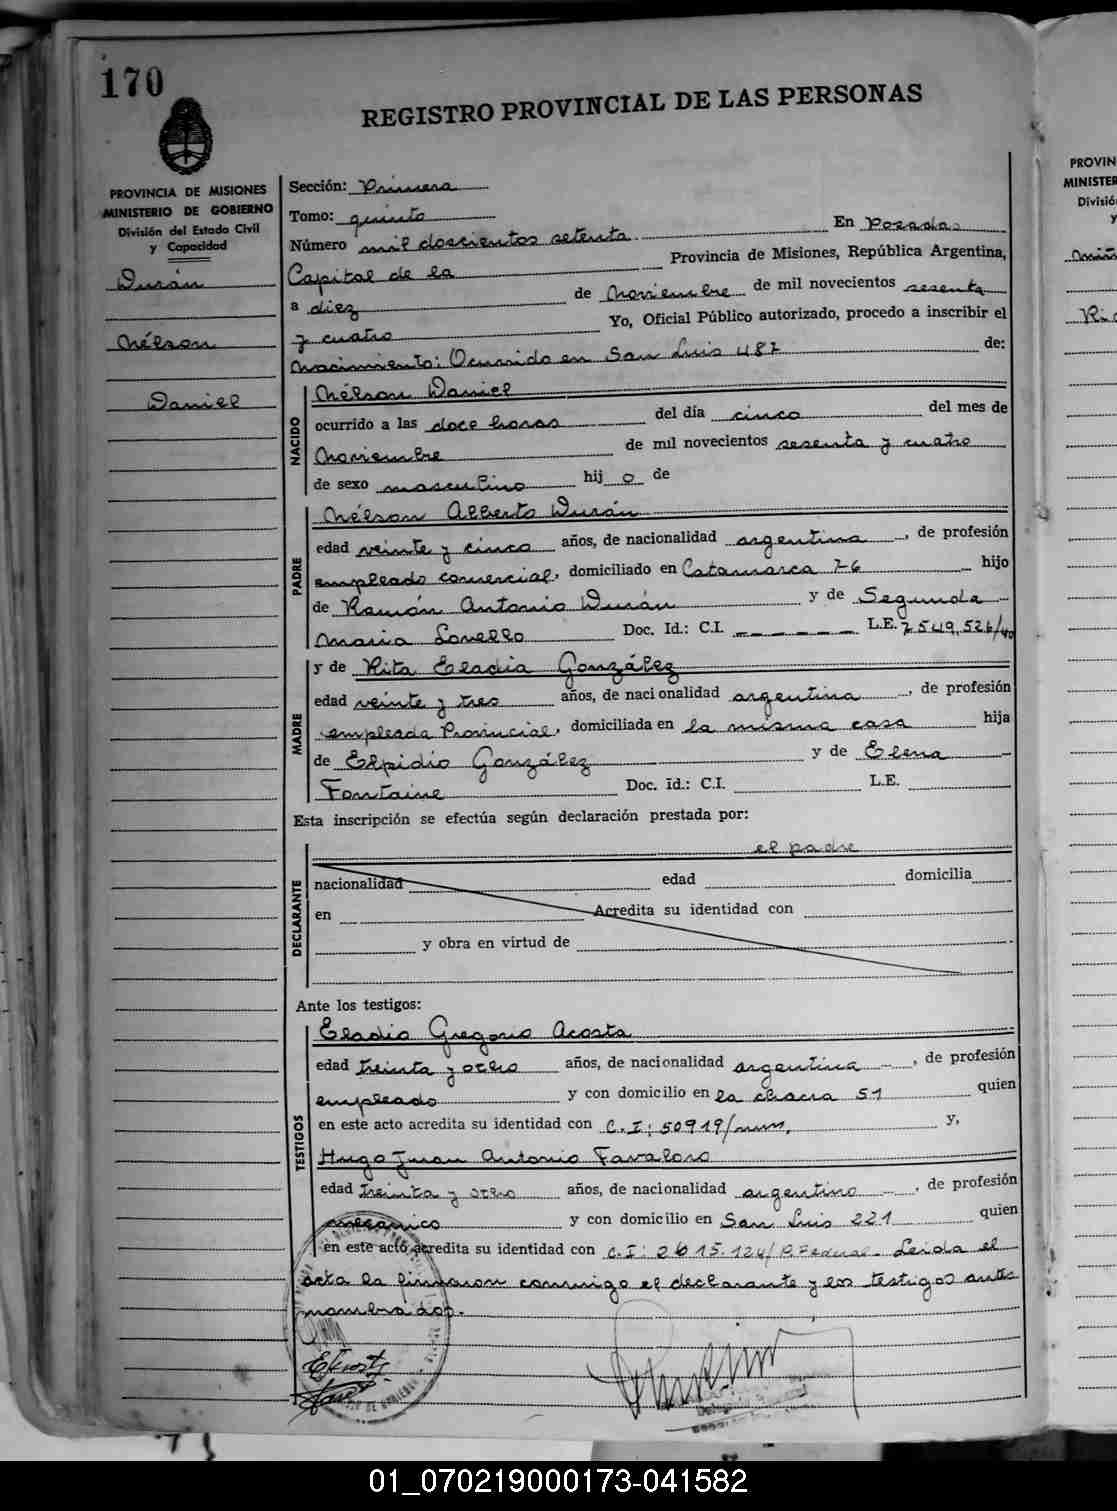 170
REGISTRO PROVINCIAL DE LAS PERSONAS
PROVINCIA DE MISIONES
MINISTERIO DE GOBIERNO
División del Estado Civil
y Capacidad
Durán
Nélson
Daniel
Sección: Primera
Tomo: quinto
Número mil doscientos setenta En Posadas
Capital de la Provincia de Misiones, República Argentina,
a diez de Noviembre de mil novecientos sesenta
y cuatro Yo, Oficial Público autorizado, procedo a inscribir el
Nacimiento: Ocurrido en San Luis 487 de:
NACIDO
Nélson Daniel
ocurrido a las doce horas del día cinco del mes de
Noviembre de mil novecientos sesenta y cuatro
de sexo masculino hij o de
PADRE
Nélson Alberto Durán
edad veinte y cinco años, de nacionalidad argentina, de profesión
empleado comercial, domiciliado en Catamarca 76 hijo
de Ramón Antonio Durán y de Segunda
María Lovello Doc. Id.: C.I. – – – – – – L.E. 7.549.526/40
MADRE
y de Rita Eladia González
edad veinte y tres años, de nacionalidad argentina, de profesión
empleada Provincial, domiciliada en la misma casa hija
de Elpidio González y de Elena
Fontaine Doc. id.: C.I. L.E.
Esta inscripción se efectúa según declaración prestada por:
el padre
DECLARANTE
nacionalidad edad domicilia
en Acredita su identidad con
y obra en virtud de
Ante los testigos:
TESTIGOS
Eladio Gregorio Acosta
edad treinta y ocho años, de nacionalidad argentina, de profesión
empleado y con domicilio en la chacra 51 quien
en este acto acredita su identidad con C.I: 50919/mnes. y,
Hugo Juan Antonio Favaloro
edad treinta y ocho años, de nacionalidad argentino, de profesión
mecánico y con domicilio en San Luis 221 quien
en este acto acredita su identidad con C.I: 2615.124/P.Federal. Leida el
acta la firmaron conmigo el declarante y los testigos antes
nombrados.
PROVIN
MINISTER
Divisió
y
01_070219000173-041582